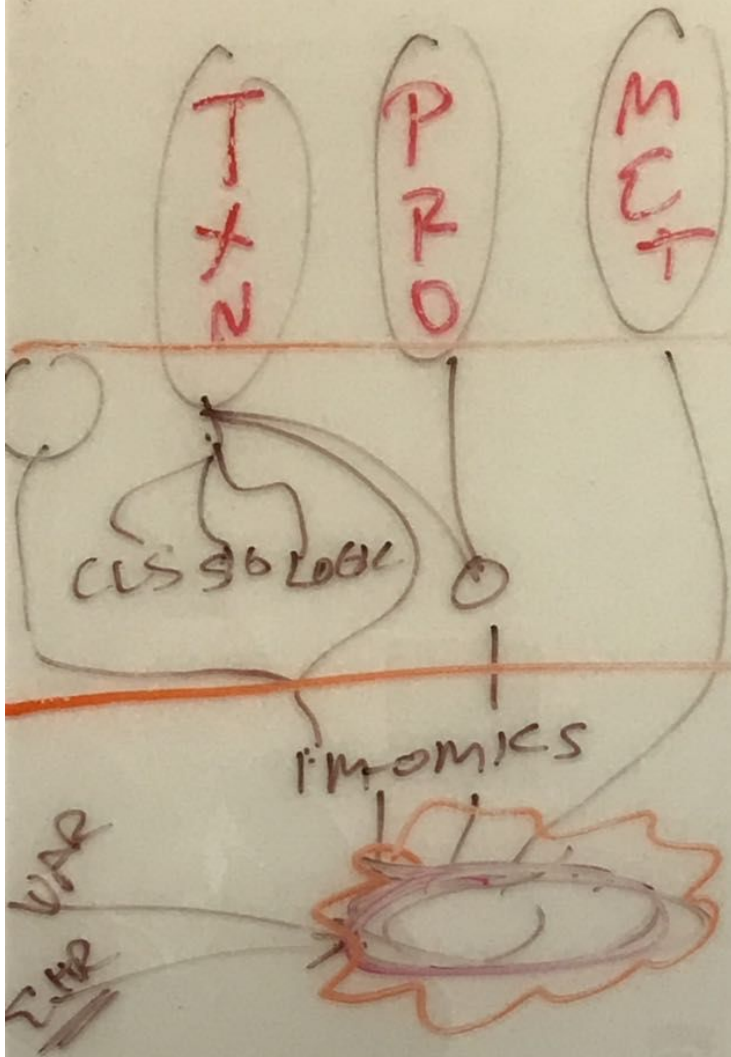 TXN
PRO
MET
CLS SIG LOGIC
IM-OMICS
VAR
EHR